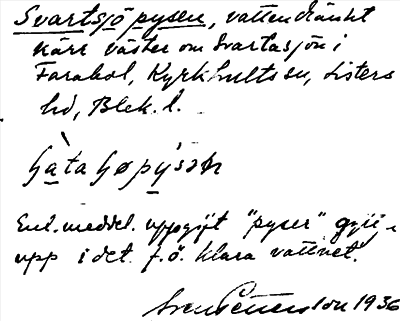 Svartsjöpysen, vattendränkt
kärr väster om Svartasjön i
Farabol, Kyrkhults sn, Listers
hd, Blek. l.
Enl. meddel. uppgift "pyser" gyttja
upp i det f.ö. klara vattnet.
Sven Pettersson 1936